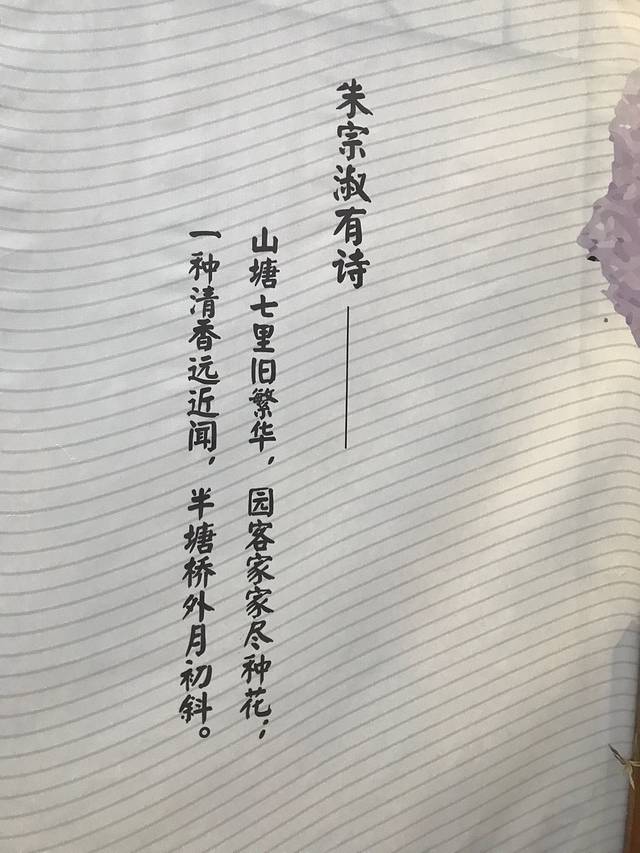 朱宗淑有诗——
山塘七里旧繁华，园客家家尽种花；
一种清香远近闻，半塘桥外月初斜。